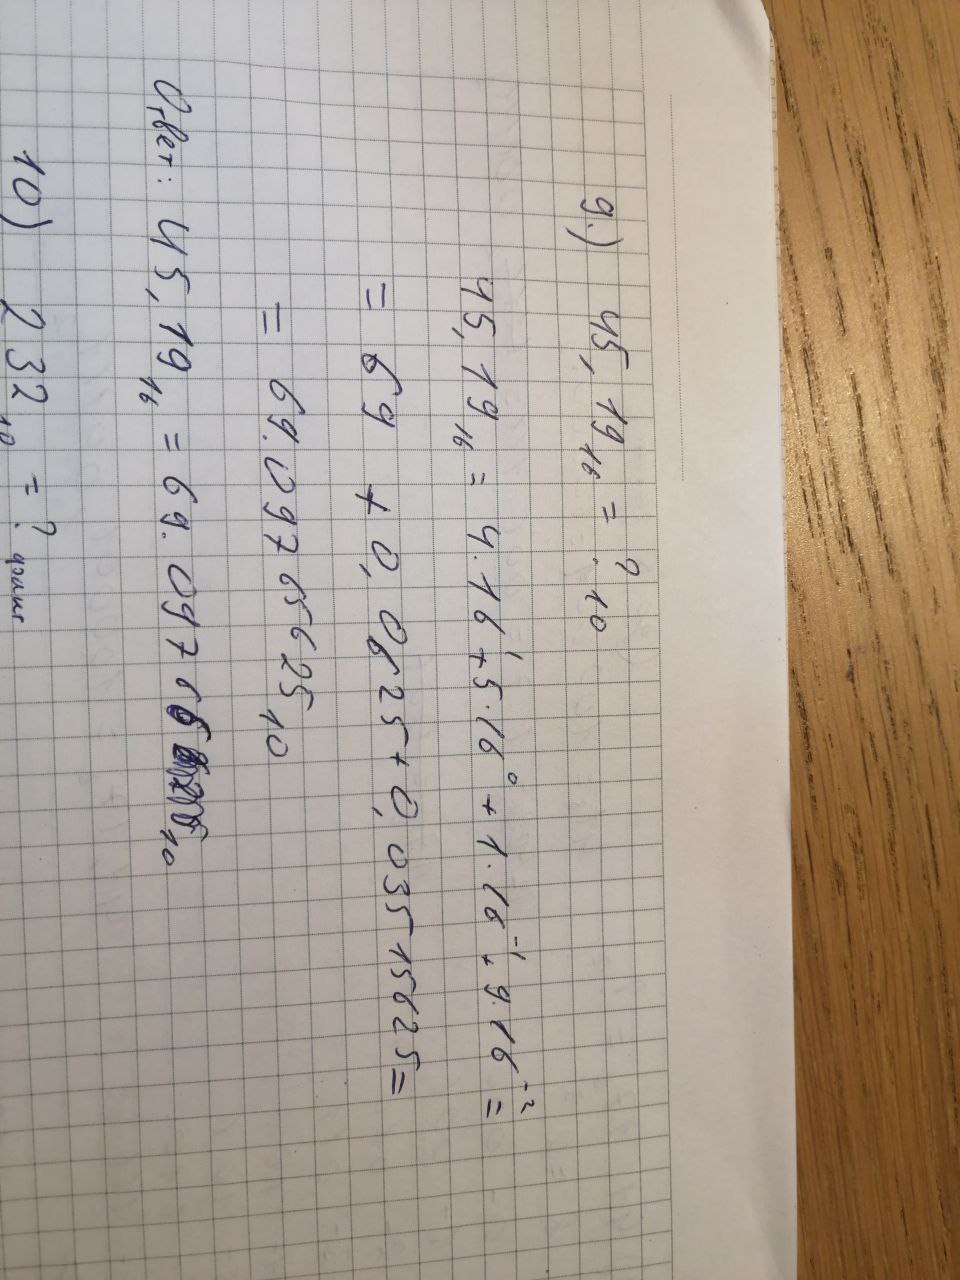 9.) 45,19₁₆ = ?.₁₀
45,19₁₆ = 4·16¹+5·16⁰+1·16⁻¹+9·16⁻²=
= 69 + 0,0625+0,03515625=
= 69.09765625₁₀
Ответ: 45,19₁₆ = 69.0976₁₀
10) 232₁₀ = ?